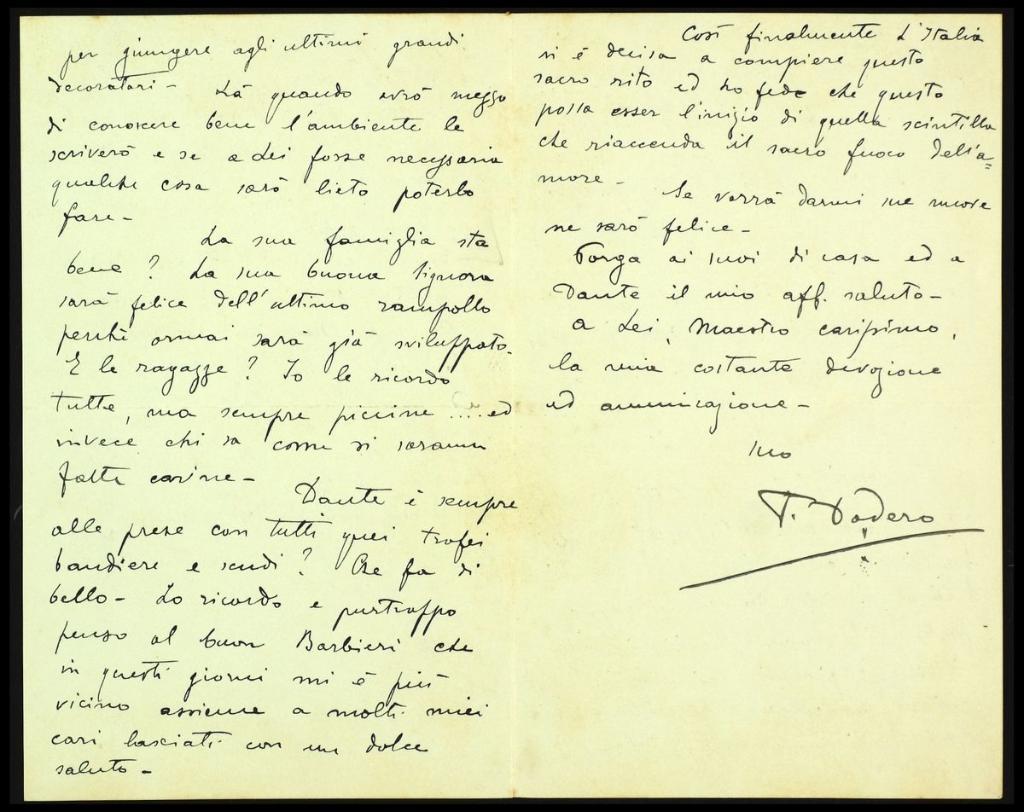 per giungere agli ultimi grandi
decoratori - Là quando avrò mezzo
di conoscere bene l'ambiente le
scriverò e se a Lei fosse necessaria
qualche cosa sarò lieto poterlo
fare -
La sua famiglia sta
bene? La sua buona Signora
sarà felice dell'ultimo rampollo
perchè ormai sarà già sviluppato.
E le ragazze? Io le ricordo
tutte, ma sempre piccine .... ed
invece chi sa come si saranno
fatte carine -
Dante è sempre
alle prese con tutti quei trofei
bandiere e scudi? Che fa di
bello - Lo ricordo e purtroppo
penso al buon Barbieri che
in questi giorni mi è più
vicino assieme a molti miei
cari lasciati con un dolce
saluto -
Così finalmente L'Italia
si è decisa a compiere questo
sacro rito ed ho fede che questo
possa esser l'inizio di quella scintilla
che riaccenda il sacro fuoco dell'a=
more -
Se vorrà darmi sue nuove
ne sarò felice -
Porga ai suoi di casa ed a
Dante il mio aff. saluto -
a Lei, Maestro carissimo,
la mia costante devozione
ed ammirazione -
suo
P. Dodero